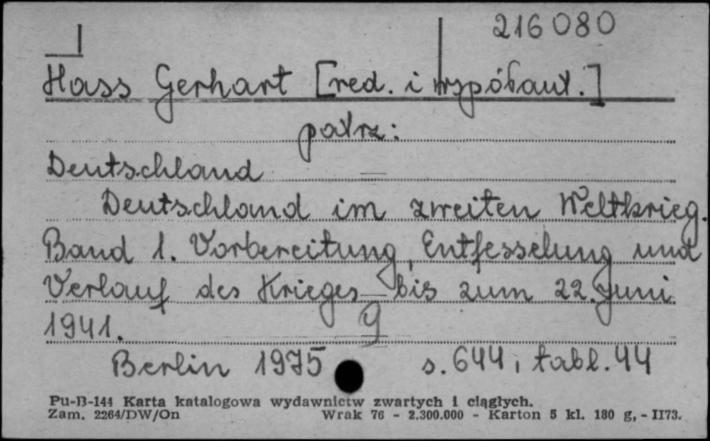 216080
Hass Gerhart [red. i współaut.]
patrz:
Deutschland
Deutschland im zweiten Weltkrieg.
Band 1. Vorbereitung, Entfesselung und
Verlauf des Krieges bis zum 22. Juni
1941. 9
Berlin 1975 s. 644, tabl. 44
Pu-B-144 Karta katalogowa wydawnictw zwartych i ciągłych.
Zam. 2264/DW/On Wrak 76 - 2.300.000 - Karton 5 kl. 180 g, - II73.